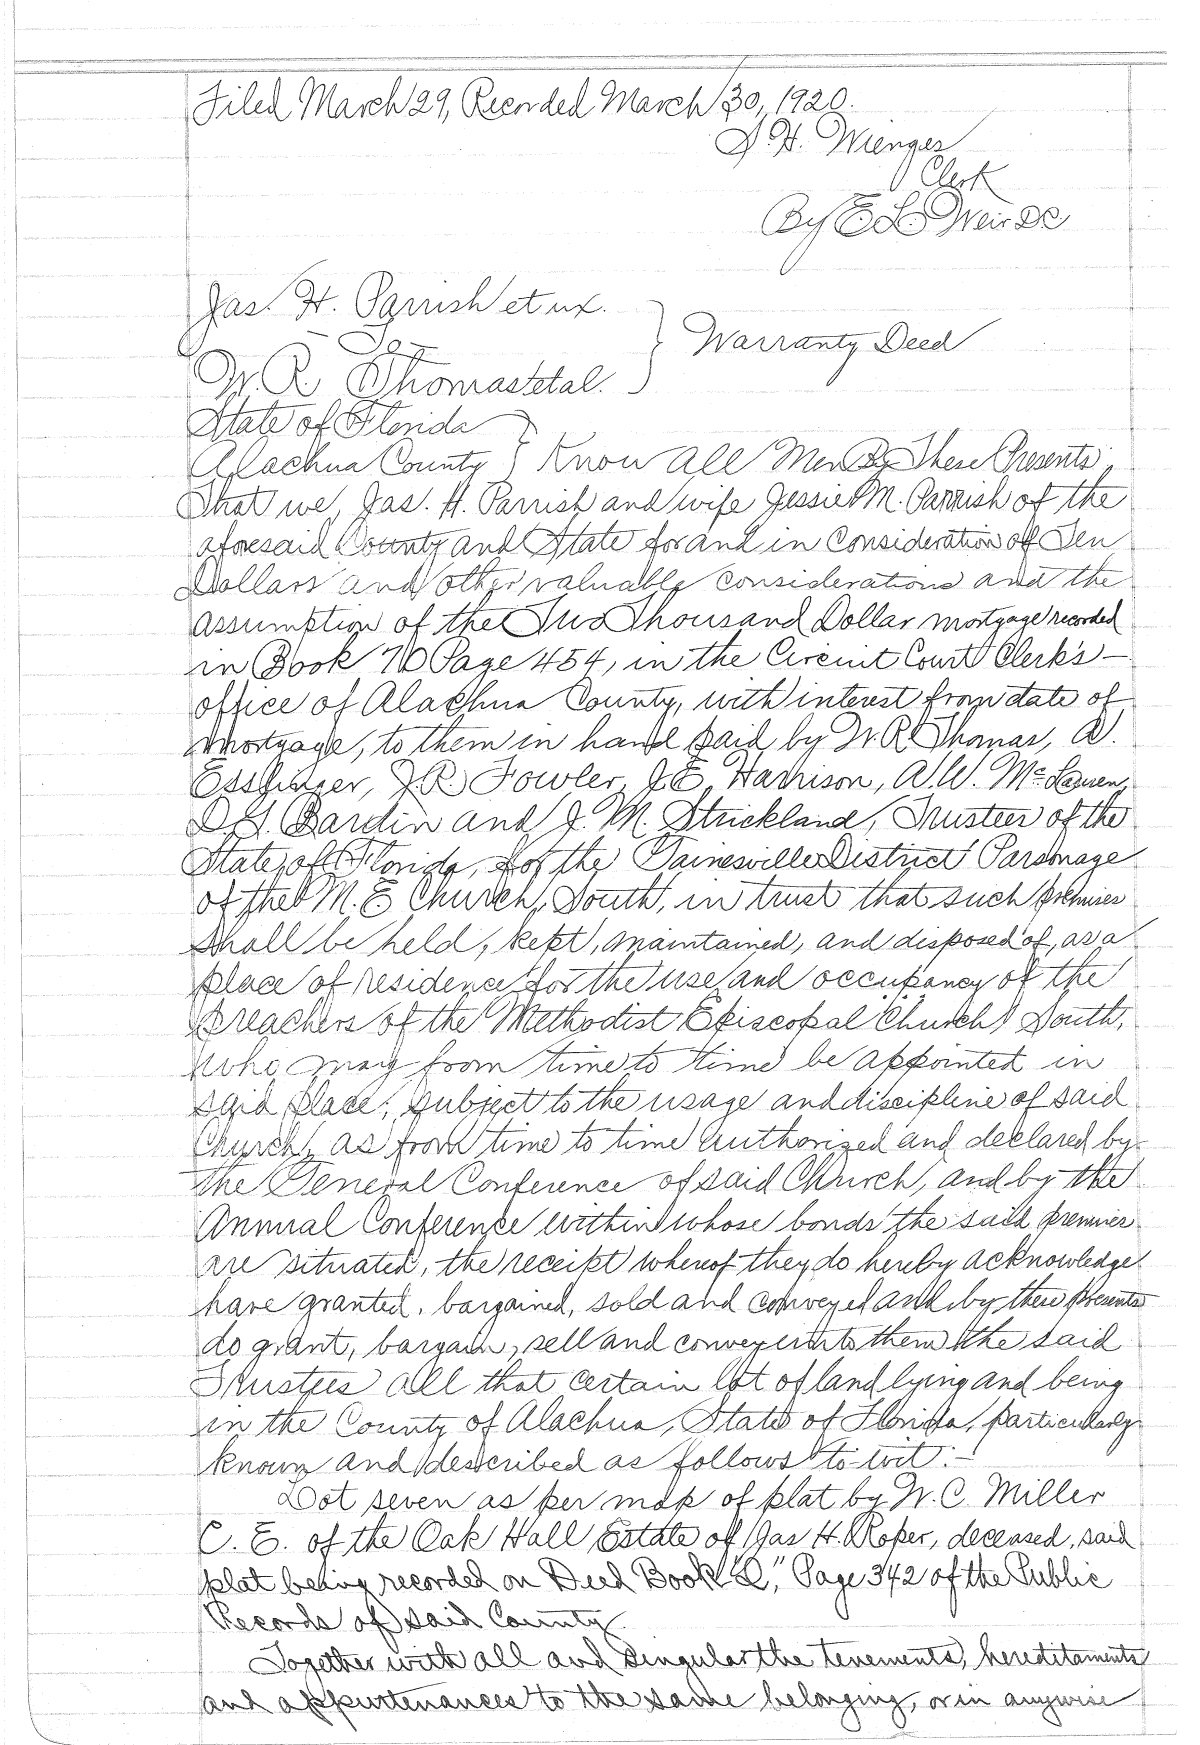 Filed March 29, Recorded March 30, 1920.
S. H. Wienges
Clerk
By E L Weir DC
Jas. H. Parrish et ux.
- To -
W. R. Thomas et al. } Warranty Deed
State of Florida
Alachua County } Know All Men By These Presents,
That we, Jas. H. Parrish and wife Jessie M. Parrish of the
aforesaid County and State for and in consideration of Ten
Dollars and other valuable considerations and the
assumption of the Two Thousand Dollar mortgage recorded
in Book 70 Page 454, in the Circuit Court Clerk's -
office of Alachua County, with interest from date of
mortgage, to them in hand paid by W. R. Thomas, W.
Esslinger, J. R. Fowler, J. E. Harrison, A. W. McLauren,
B. J. Bardin and J. M. Strickland, Trustees of the
State of Florida, for the Gainesville District Parsonage
of the M. E Church, South, in trust that such premises
shall be held, kept, maintained, and disposed of, as a
place of residence for the use and occupancy of the
preachers of the Methodist Episcopal Church South,
who may from time to time be appointed in
said place; subject to the usage and discipline of said
Church, as from time to time authorized and declared by
the General Conference of said Church, and by the
Annual Conference within whose bonds the said premises
are situated, the receipt whereof they do hereby acknowledge
have granted, bargained, sold and conveyed and by these presents
do grant, bargain, sell and convey unto them the said
Trustees all that certain lot of land lying and being
in the County of Alachua, State of Florida, particularly
known and described as follows to-wit:-
Lot seven as per map of plat by W. C. Miller
C. E. of the Oak Hall Estate of Jas H. Roper, deceased, said
plat being recorded on Deed Book "Q," Page 342 of the Public
Records of said County
Together with all and singular the tenements, hereditaments
and appurtenances to the same belonging, or in anywise